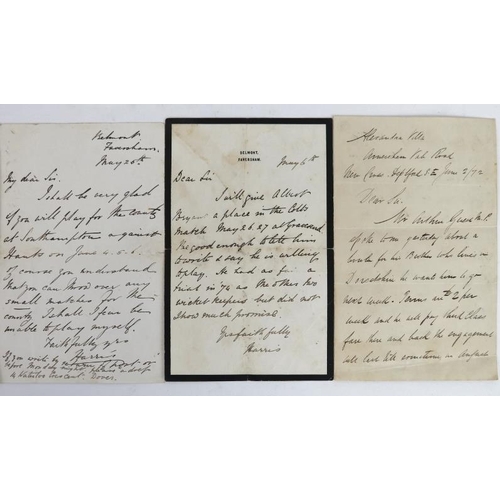 Belmont
Faversham,
May 20th
My dear Sir,
I shall be very glad
if you will play for the county
at Southampton against
Hants on June 4. 5. 6.
Of course you understand
that you can throw over any
small matches for the
county. I shall I fear be
unable to play myself.
Faithfully yrs
Harris
If you write by
before Monday night please direct
Waterloo Crescent. Dover.
BELMONT,
FAVERSHAM.
May 6th
Dear Sir
I will give Albert
Bryan a place in the Colts
match May 26. 27 at Gravesend
Be good enough to tell him
to write & say he is willing
to play. He had as fair a
trial in '74 as the other two
wicket keepers but did not
show much promise.
Yrs faithfully
Harris
Alexandra Villa
Amersham Park Road
New Cross Deptford S.E June 2/72
Dear Sir.
Mr Arthur M.P.
of the town yesterday about a
for his Brother who lives in
Devonshire he want him to go
next week. Terms £2 per
week and he will pay third Class
fare here and back the engagement
will last till sometime in August